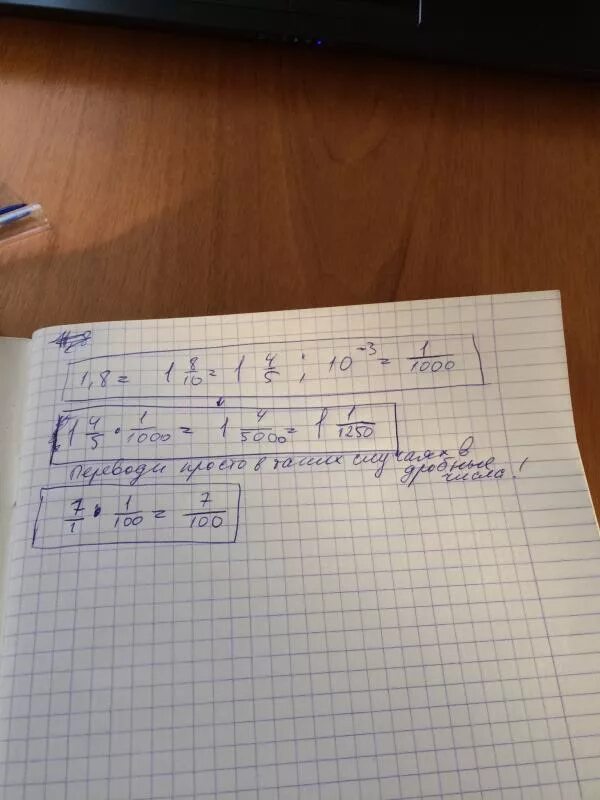 1,8 = 1 8/10 = 1 4/5 ; 10⁻³ = 1/1000
1 4/5 · 1/1000 = 1 4/5000 = 1 1/1250
Переводи просто в таких случаях в
дробные
числа!
7/1 · 1/100 = 7/100